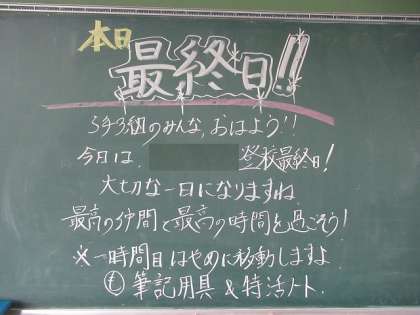 本日
最終日!!
5年3組のみんな、おはよう!!
今日は、登校最終日!
大切な一日になりますね
最高の仲間と最高の時間を過ごそう!
※一時間目はやめに移動しますよ
も 筆記用具 & 特活ノート.